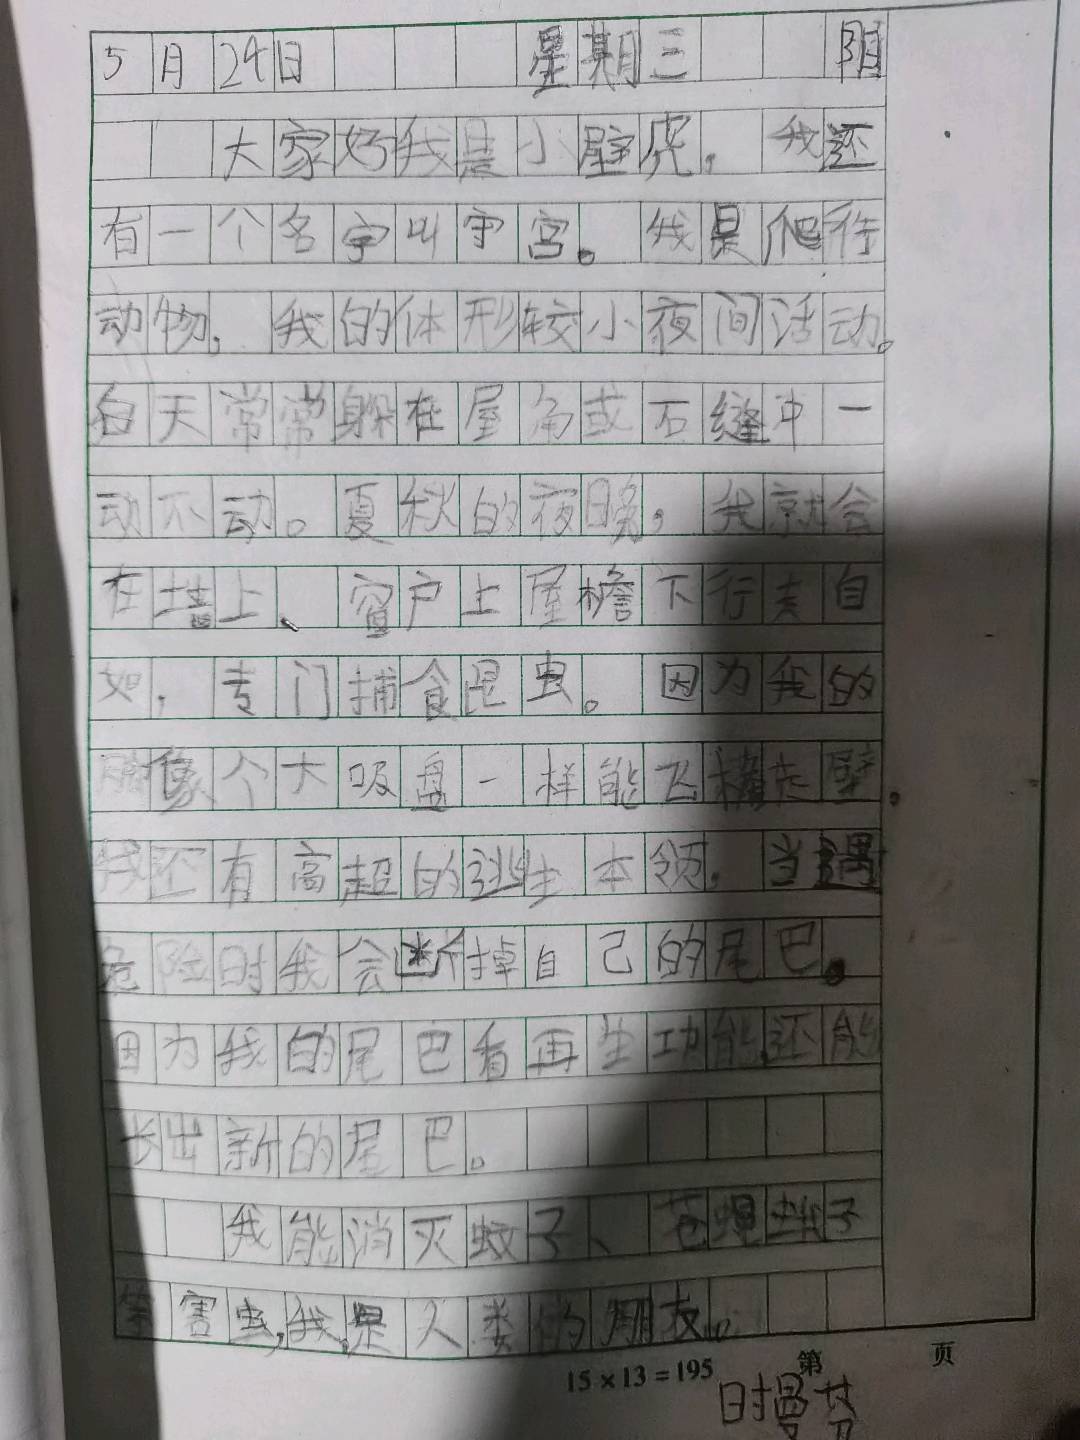 5月24日 星期三 阴
大家好我是小壁虎，我还
有一个名字叫守宫。我是爬行
动物，我的体形较小夜间活动。
白天常常躲在屋角或石缝中一
动不动。夏秋的夜晚，我就会
在墙上、窗户上屋檐下行走自
如，专门捕食昆虫。因为我的
脚像个大吸盘一样能飞檐走壁
我还有高超的逃生本领，当遇
危险时我会断掉自己的尾巴。
因为我的尾巴有再生功能还能
长出新的尾巴。
我能消灭蚊子、苍蝇蛾子
等害虫，我是人类的朋友。
15×13=195 第 页